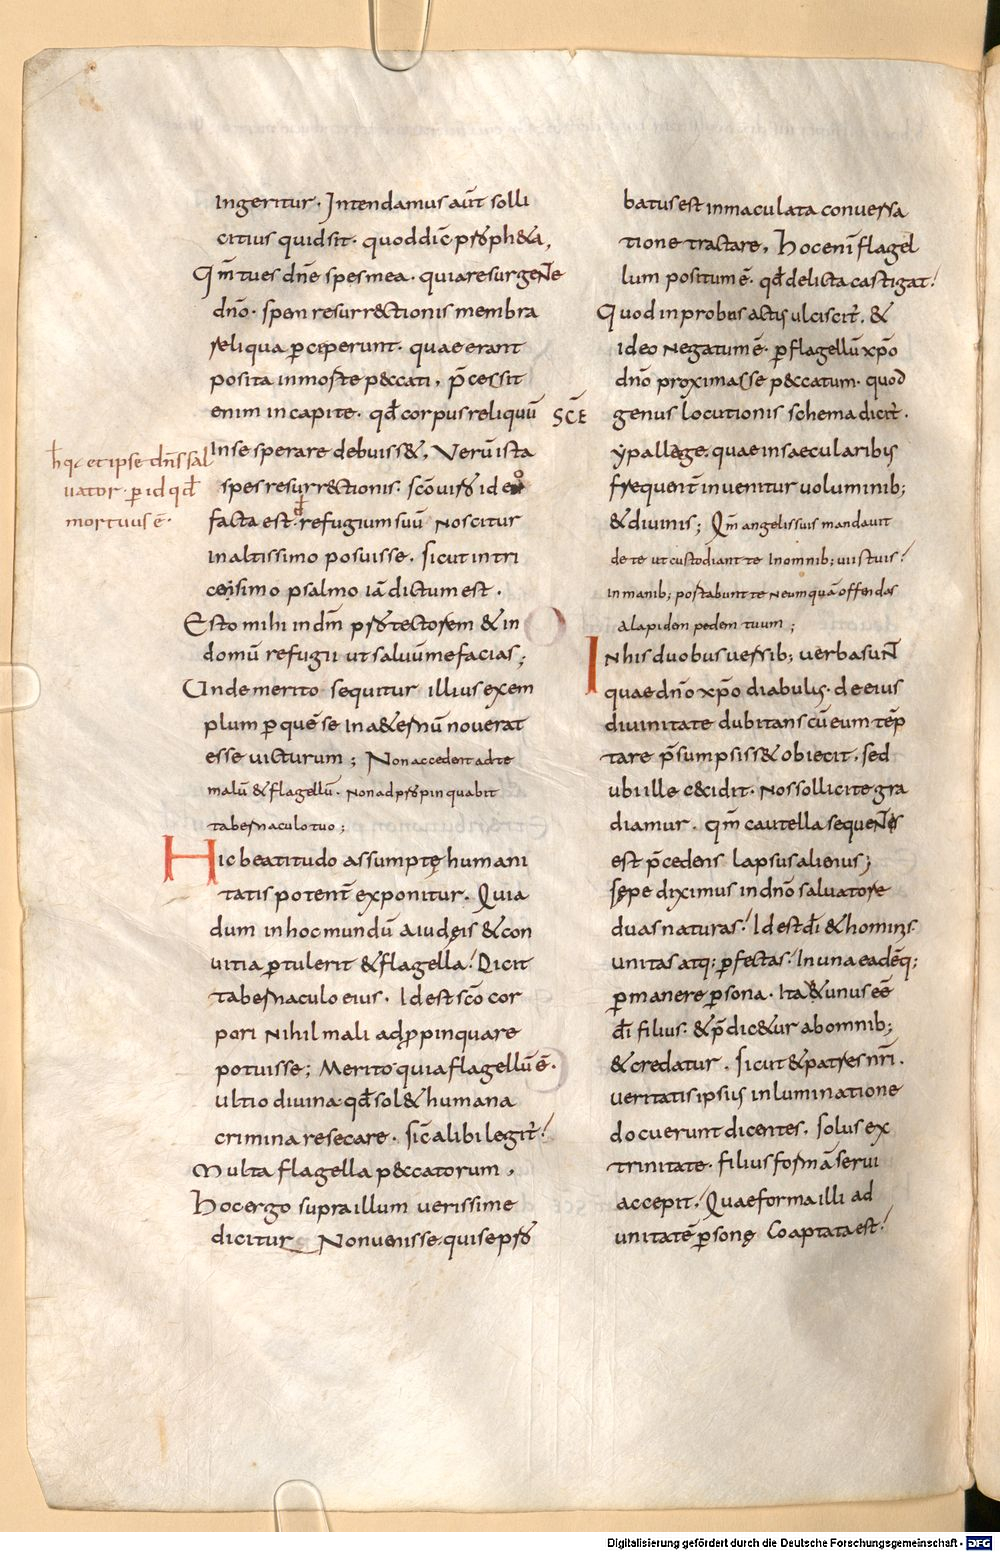 ingeritur. Intendamus aut̄ solli
citius quid sit. quod dic̄ p̱ro̱ph&a,
Qm̄ tu es dn̄e spes mea. quia resurgente
dn̄o. spem resurr&ctionis membra
reliqua ꝑciperunt. quae erant
posita in morte p&ccati, p̄cessit
enim in capite. qd̄ corpus reliquū
in se sperare debuiss&. Verū ista
spes resurr&ctionis. sc̄o uiro ideo
facta est. refugium suū noscitur
in altissimo posuisse. sicut in tri
censimo psalmo iā dictum est.
Esto mihi in dm̄ protectorem & in
domū refugii ut saluum me facias;
Unde merito sequitur illius exem
plum ꝑ quē se in a&ernū nouerat
esse uicturum; Non accedent ad te
malū & flagellū. non adpropinquabit
tabernaculo tuo;
Hic beatitudo assumptę humani
tatis potent̄ exponitur. Quia
dum in hoc mundū a iudęis & con
uitia ꝑtulerit & flagella. Dicit
tabernaculo eius. Id est sc̄o cor
pori nihil mali adꝓpinquare
potuisse; Merito quia flagellū ē.
ultio diuina. qd̄ sol& humana
crimina resecare. sic̄ alibi legit̄.
Multa flagella p&ccatorum,
Hoc ergo supra illum uerissime
dicitur Non uenisse. qui se pro
h̄ q; et ipse dn̄s sal
uator. ꝑ id qd̄
mortuus ē.
SC̄E
batus est inmaculata conuersa
tione tractare, Hoc eni̅ flagel
lum positum ē. qd̄ delicta castigat.
Quod inprobus actis ulciscit̄. &
ideo negatum ē. ꝑ flagellū xp̄o
dn̄o proximasse p&ccatum. quod
genus locutionis schema dicit̄.
ypallage. quae in saecularibus
frequent̄ inuenitur uoluminib;
& diuinis; Qm̄ angelis suis mandauit
de te ut custodiant te In omnib; uiis tuis.
in manib; portabunt te ne umquā offendas
a lapidem pedem tuum;
In his duobus uersib; uerba sunt
quae dn̄o xp̄o diabulus. de eius
diuinitate dubitans cū eum tēp
tare p̄sumpsiss& obiecit. sed
ubi ille c&cidit. Nos sollicite gra
diamur. qm̄ cautella sequentis
est p̄cedens lapsus alienus;
sępe diximus in dn̄o saluatore
duas naturas. Id est dī & hominis.
unitas atq; ꝑfectas. In una eadēq;
ꝑmanere ꝑsona. Ita & unus eē
dī filius. & p̄dic&ur ab omnib;
& credatur. sicut & patres nr̄i.
ueritatis ipsius inluminatione
docuerunt dicentes. solus ex
trinitate. filius formā serui
accepit. Quae forma illi ad
unitatē ꝑsonę Coaptata est.
Digitalisierung gefördert durch die Deutsche Forschungsgemeinschaft - DFG